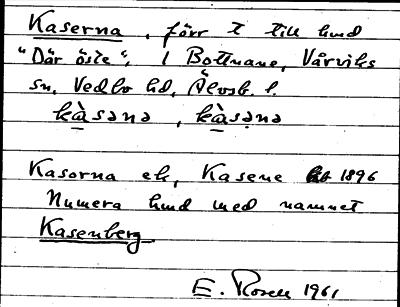 Kaserna, förr t till hmd
"Där öste", i Bottnane, Vårviks
sn, Vedbo hd, Älvsb. l.
kàsənə, kàsənə
Kasorna el, Kasene 1896
Numera hmd med namnet
Kasenberg
E. Rosell 1961